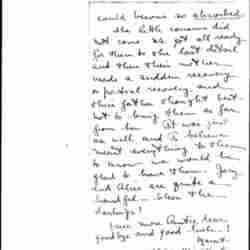 could become so absorbed.
The little cousins did
not come. We got all ready
for them to the last detail
and then their mother
made a sudden recovery
or partial recovery and
their father thought best
not to bring them so far
from her. It was just
as well and I believe
meant everything to them
to know we would be
glad to have them. Joey
and Alice are quite a
handful - bless the
darlings!
once more Auntie, dear
goodbye and good luck -!